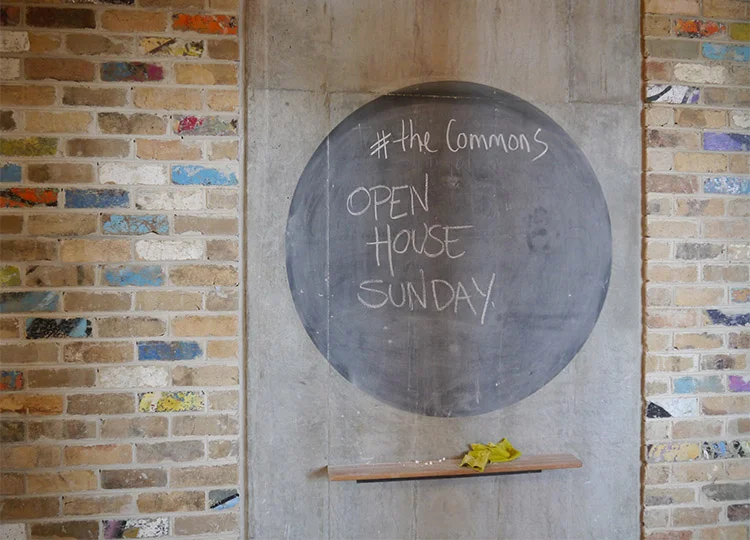 #the Commons
OPEN
HOUSE
SUNDAY